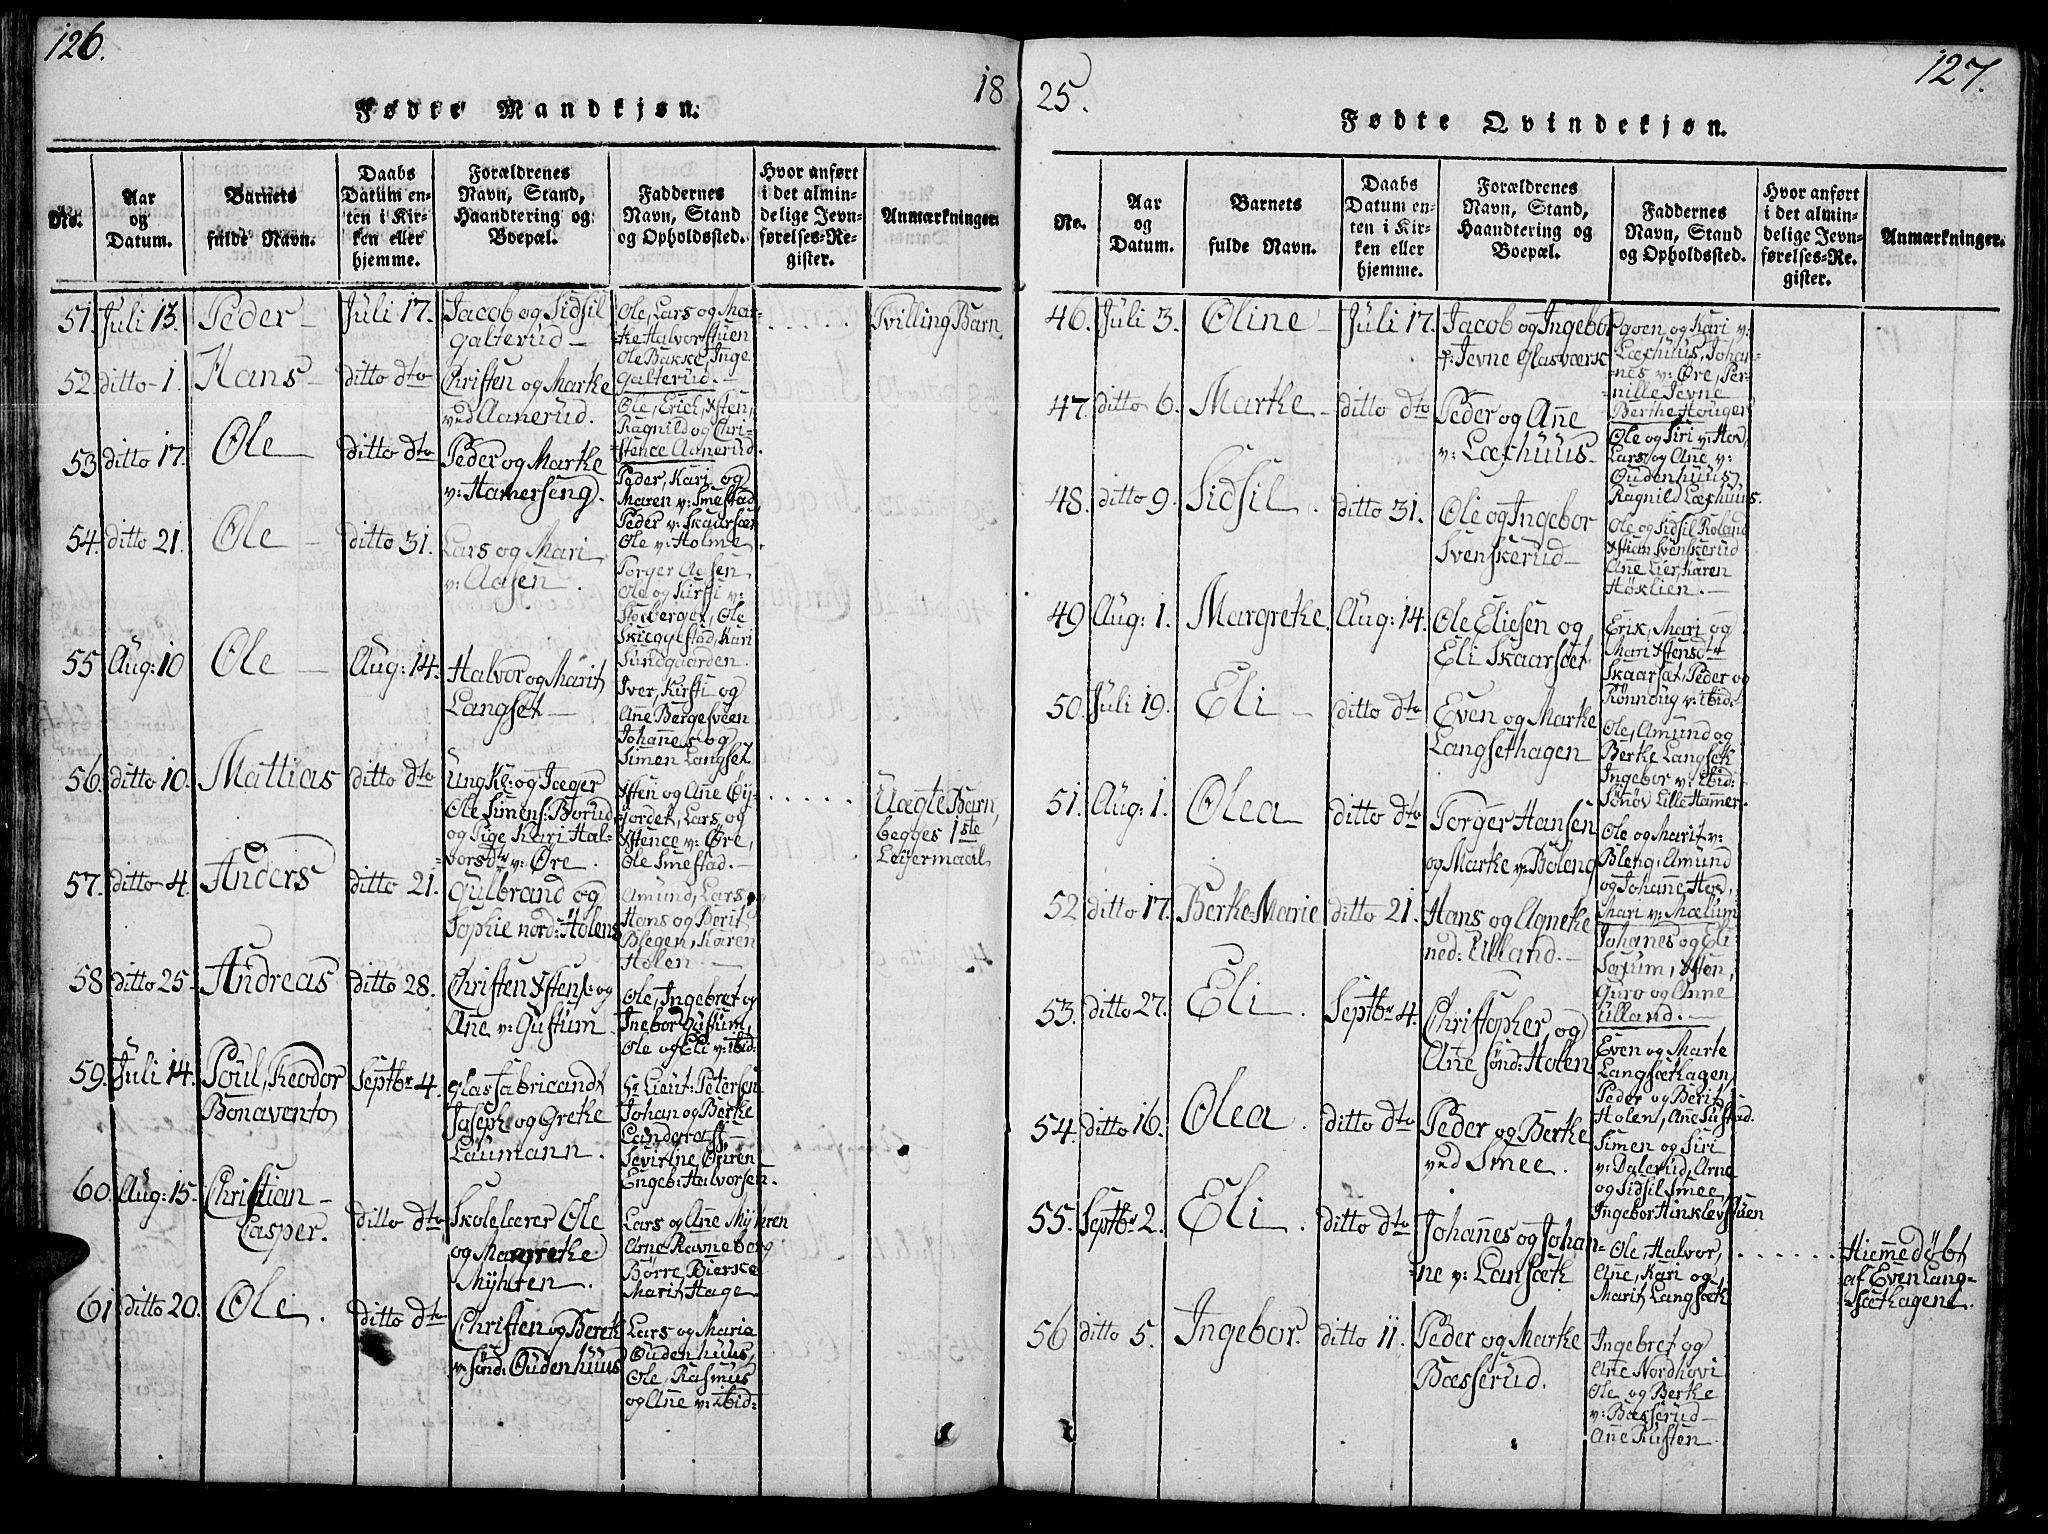 126.
18
Fødte Mandkjøn.
No.
Aar
og
Datum.
Barnets
fulde Navn.
Daabs
Datum en-
ten i Kir-
ken eller
hjemme.
Forældrenes
Navn, Stand,
Haandtering og
Boepæl.
Faddernes
Navn, Stand
og Opholdssted.
Hvor anført
i det almin-
delige Jevn-
førelses-Re-
gister.
Anmærkninger.
51. Juli 13. Peder Juli 17.
Jacob og Sidsil
Galterud
Ole, Lars og Mar-
the Halvorstuen
Ole Bakke, Inge
Galterud.
Tvilling Barn
52 ditto 1. Hans ditto dto
Christen og Marthe
ved Aanerud.
Ole, Erich, Xsten,
Ragnild og Chri-
stence Aanerud.
53 ditto 17. Ole ditto dto
Peder og Marthe
v: Hamerseng.
Peder, Kari og
Maren v: Smestad
Peder v: Skaarsæt
Ole v: Holme
54. ditto 21. Ole ditto 31.
Lars og Mari
v: Aasen.
Torger Aasen
Ole og Kirsti v:
Stoberget, Ole
Skieggestad, Kari
Sundgaarden
55 Aug: 10 Ole Aug: 14.
Halvor og Marit
Langset
Iver, Kirsti og
Ane Bergesveen
Johannes og
Simen Langset
56. ditto 10. Mattias ditto dto
Ungk: og Jæger
Ole Simens: Borud
og Pige Kari Hal-
vorsdtr v: Øre.
Xsten og Ane Eij-
jordet, Lars, og
Xstence v: Øre,
Ole Smestad.
Uægte Barn,
begges 1ste
Leijermaal
57. ditto 4. Anders ditto 21.
Gulbrand og
Sophie nord: Holens
Amund, Lars,
Hans og Berit
Blegen, Karen
Holen.
58 ditto 25 Andreas ditto 28.
Christen Xstens: og
Ane v: Gustum
Ole, Ingebret og
Inebor Gustum,
Ole og Eli v: ibid:
59. Juli 14. Poul, Theodor
Bonavento Septbr 4.
Glasfabricandt
Joseph og Grethe
Laumann.
Sr Lieut: Petersen
Johan og Berthe
Landgraff
Sevirine Ouren
Engeb: Halvorsen.
60. Aug: 15. Christian
Casper. ditto dto
Skolelærer Ole
og Margrethe
Myhren.
Lars og Ane Myhren
Arne Ravneberg
Børre Bierke
Marit Hage.
61 ditto 20. Ole. ditto dto
Christen og Bereth
v: sønd: Oudenhuus
Lars og Maria
Oudenhuus,
Ole, Rasmus
og Ane v: ibid:
25.
127.
Fødte Qvindekjøn.
No.
Aar
og
Datum.
Barnets
fulde Navn.
Daabs
Datum en-
ten i Kir-
ken eller
hjemme.
Forældrenes
Navn, Stand,
Haandtering og
Boepæl.
Faddernes
Navn, Stand
og Opholdssted.
Hvor anført
i det almin-
delige Jevn-
førelses-Re-
gister.
Anmærkninger.
46. Juli 3. Oline Juli 17.
Jacob og Ingebor
Jevne Glasværk
og Kari v:
Læxhuus, Johan-
nes v: Øre, Per-
nille Jevne
Berthe Houger
47. ditto 6. Marthe ditto dto
Peder og Ane
v: Læxhuus
Ole og Siri v: Hov,
Lars og Ane v:
Oudenhuus,
Ragnild Læxhuus.
48. ditto 9. Sidsil. ditto 31.
Ole og Ingebor
Svenskerud
Ole og Sidsil Roland
Xstian Svenskerud
Ane Lier, Karen
Høxlien.
49 Aug: 1. Margrethe. Aug: 14.
Ole Eliesen og
Eli Skaarsæt
Erik, Mari og
Mari Xstensdtr
Skaarsæt, Peder og
Rønnoug v: ibid:
50. Juli 19. Eli ditto dto
Even og Marthe
Langsethagen
Ole, Amund og
Berthe Langseth
Ingebor v: ibid:
Sønøv Lille Hamer.
51. Aug: 1. Olea ditto dto
Torger Hansen
og Marthe v: Boleng
Ole og Marit v:
Bleng, Amund
og Johanne Hov,
Mari v: Mælum
52 ditto 17. Berthe-Marie ditto 21.
Hans og Agnethe
ned: Ulland.
Johanes og Eli
Saxum, Xsten,
Guro og Anne
Ulland.
53. ditto 27. Eli. Septbr 4.
Christopher og
Ane sønd: Holen
Even og Marte
Langsæthagen,
Peder og Berit
Holen, Ane Sustad.
54. ditto 16. Olea. ditto dto
Peder og Berthe
ved Smee.
Simen og Siri
v: Dalerud, Arne
og Sidsil Smee,
Ingebor Hinklevstuen
55. Septbr 2. Eli. ditto dto
Johannes og Johan-
ne v: Lansæth
Ole, Halvor,
Ane, Kari og
Marit Langsæth
Hiemmedøbt
af Even Lang-
sæthagen.
56 ditto 5. Ingebor. ditto 11.
Peder og Marthe
Bæsserud.
Ingebret og
Ane Nordhovi
Ole og Berthe
v: Bæsserud
Ane Rusten